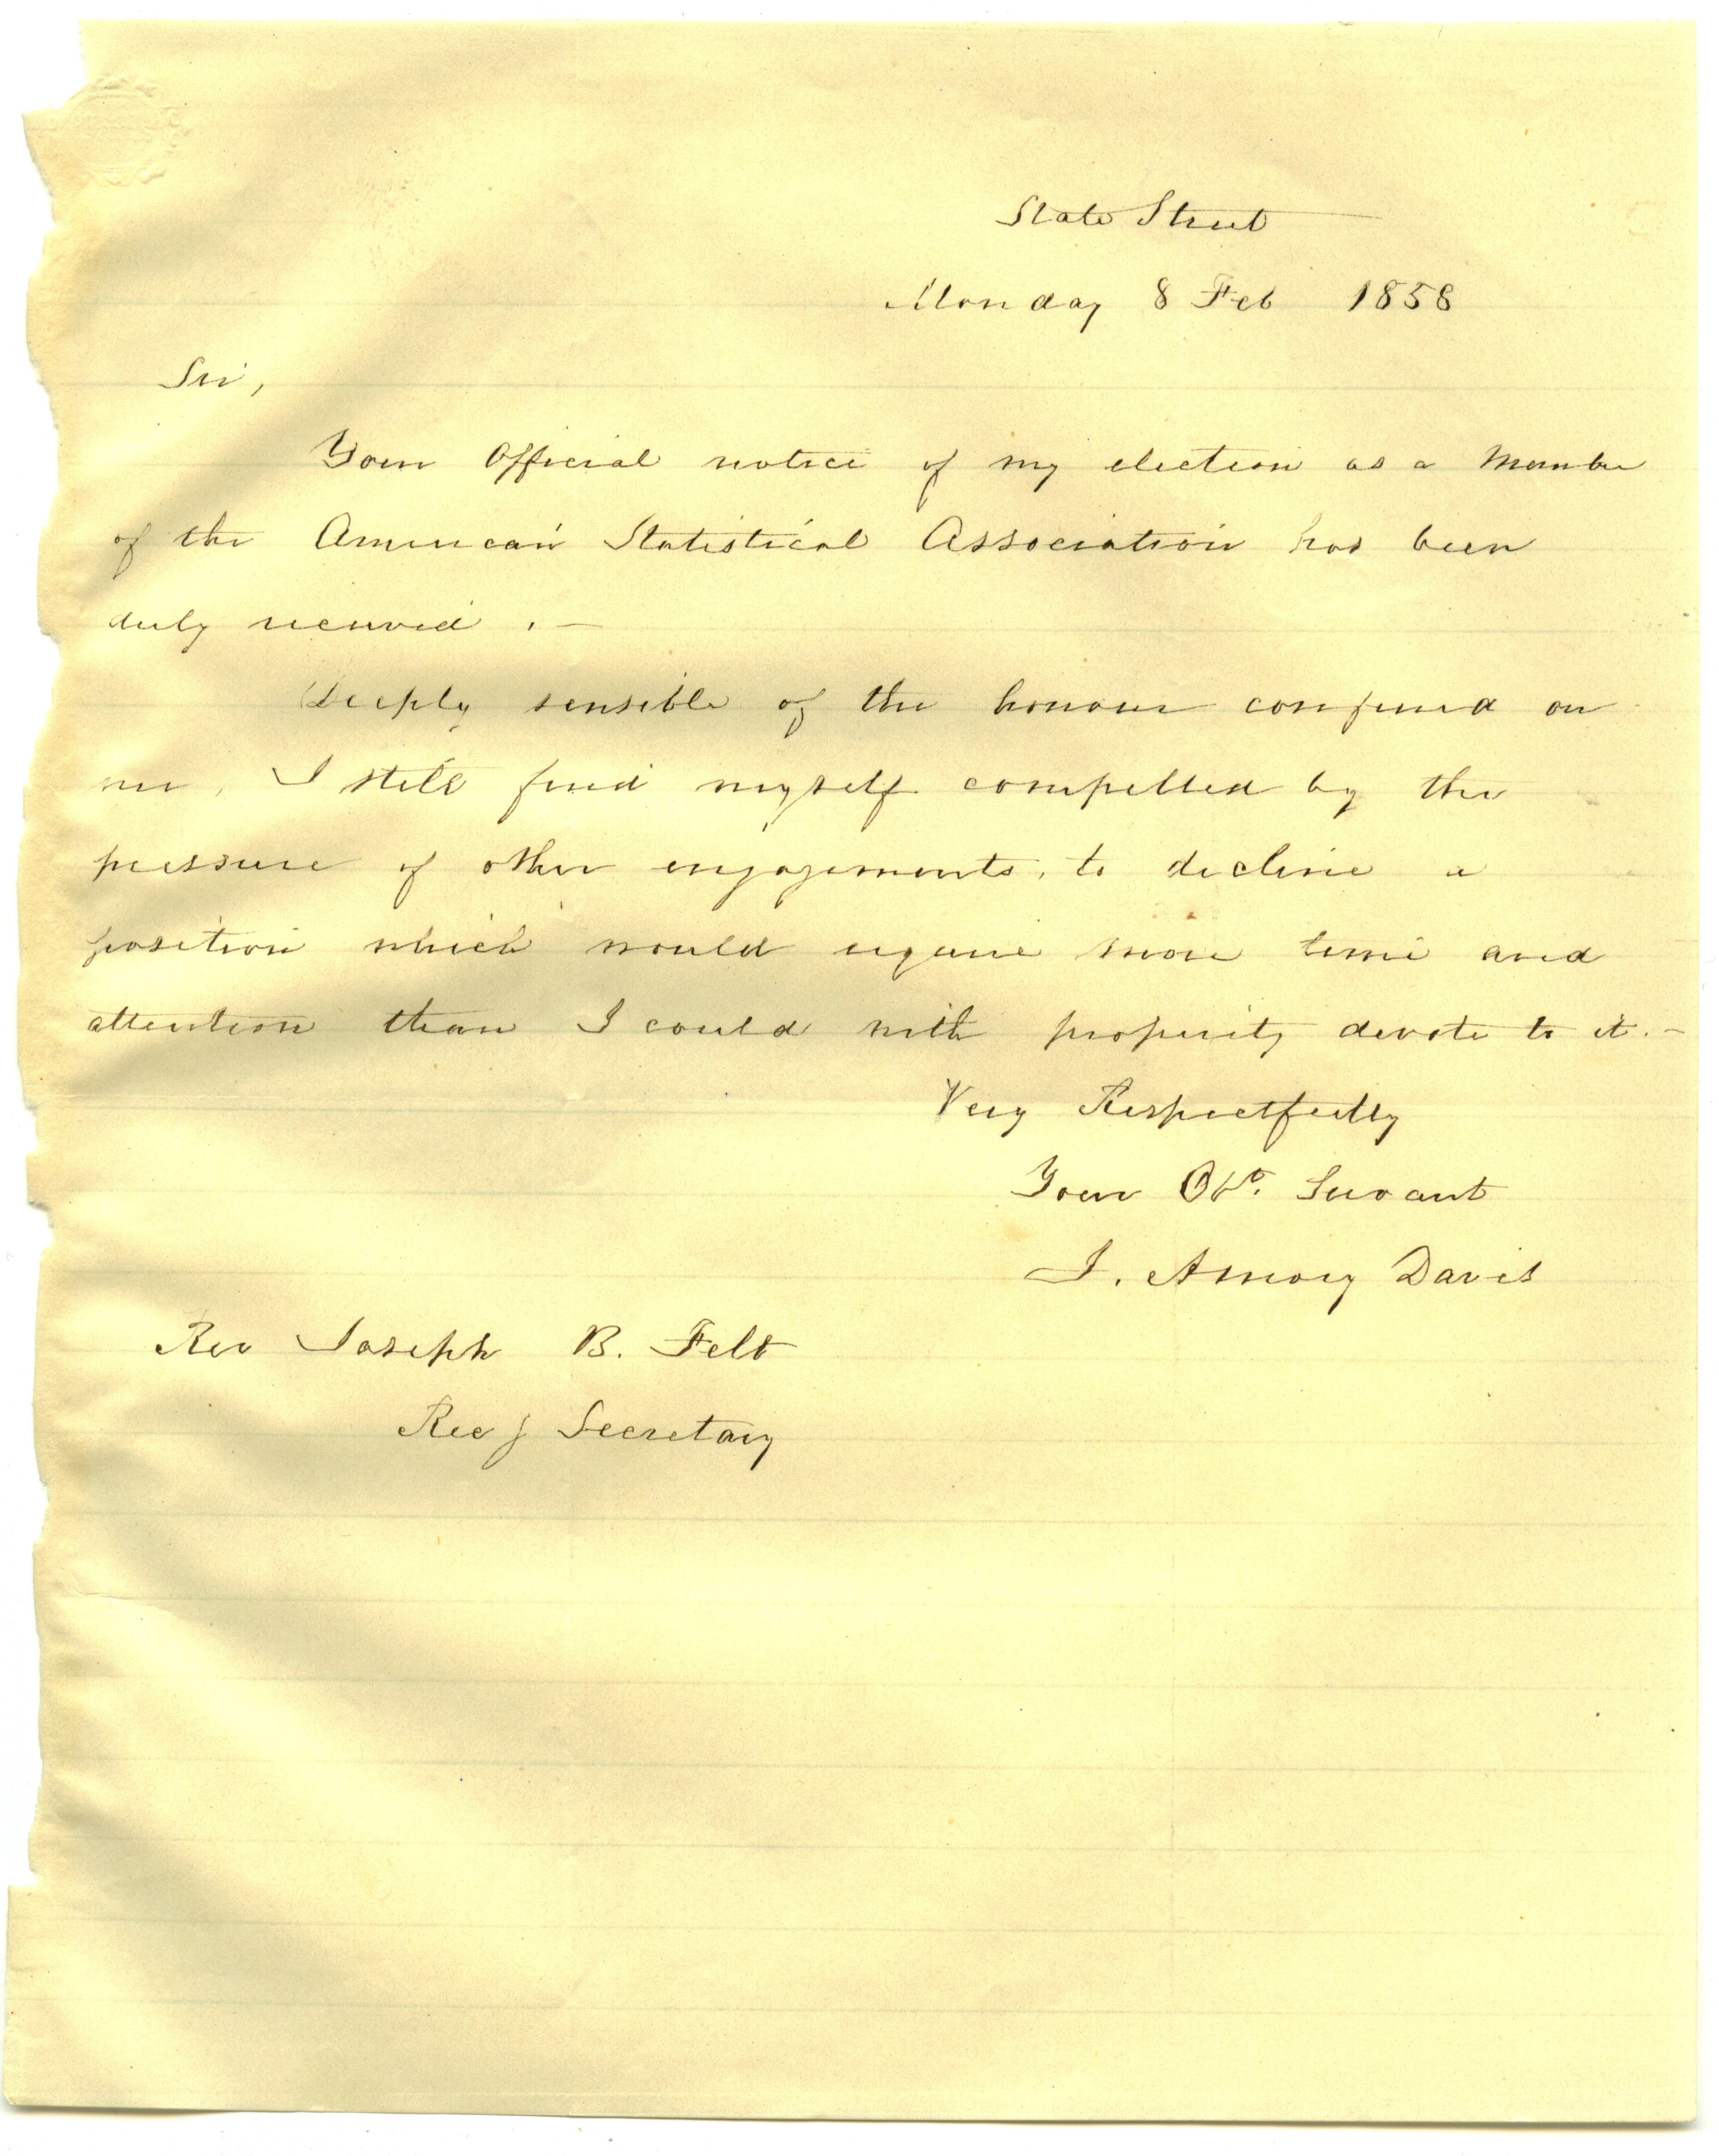 State Street
Monday 8 Feb 1858
Sir,
Your Official notice of my election as a Member
of the American Statistical Association has been
duly received. —
Deeply sensible of the honour conferred on
me, I still find myself compelled by the
pressure of other engagements, to decline a
position which would require more time and
attention than I could with propriety devote to it. —
Very Respectfully
Your Obt. Servant
I. Amory Davis
Rev Joseph B. Felt
Recg Secretary